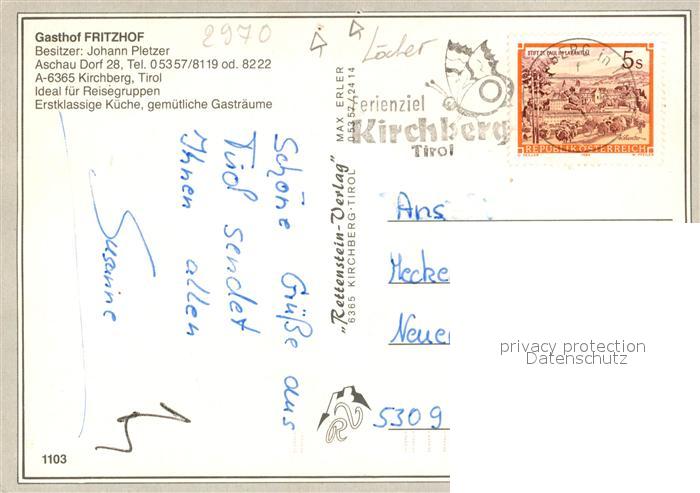 Gasthof FRITZHOF
Besitzer: Johann Pletzer
Aschau Dorf 28, Tel. 05357/8119 od. 8222
A-6365 Kirchberg, Tirol
Ideal für Reisegruppen
Erstklassige Küche, gemütliche Gasträume
2970
Löcher
Schöne Grüße aus
Tirol sendet
Ihnen allen
Susanne
1103
"Rettenstein-Verlag" MAX ERLER
6365 KIRCHBERG-TIROL 05357/2414
RV
erienziel
Kirchberg
Tirol
BERG in
STIFT ST. PAUL IM LAVANTTAL
5s
REPUBLIK ÖSTERREICH
Ans
Mecke
Neue
5309
privacy protection
Datenschutz